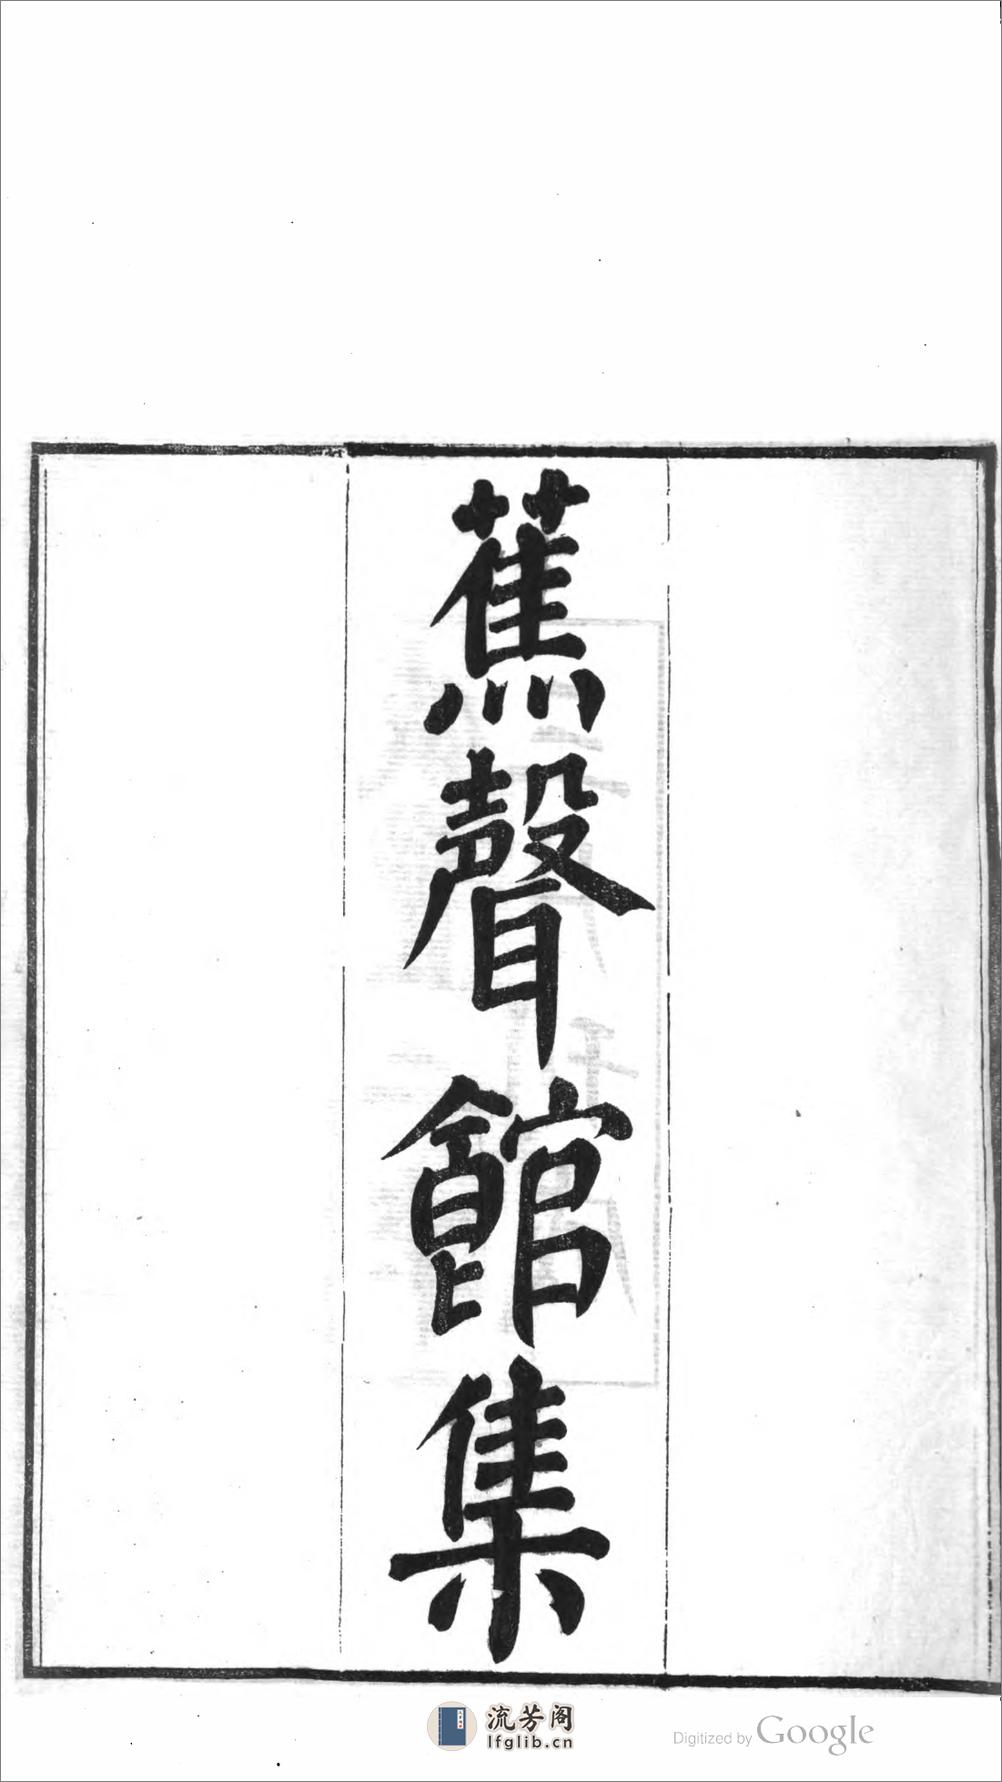 蕉聲館集
流芳阁
lfglib.cn
Digitized by Google